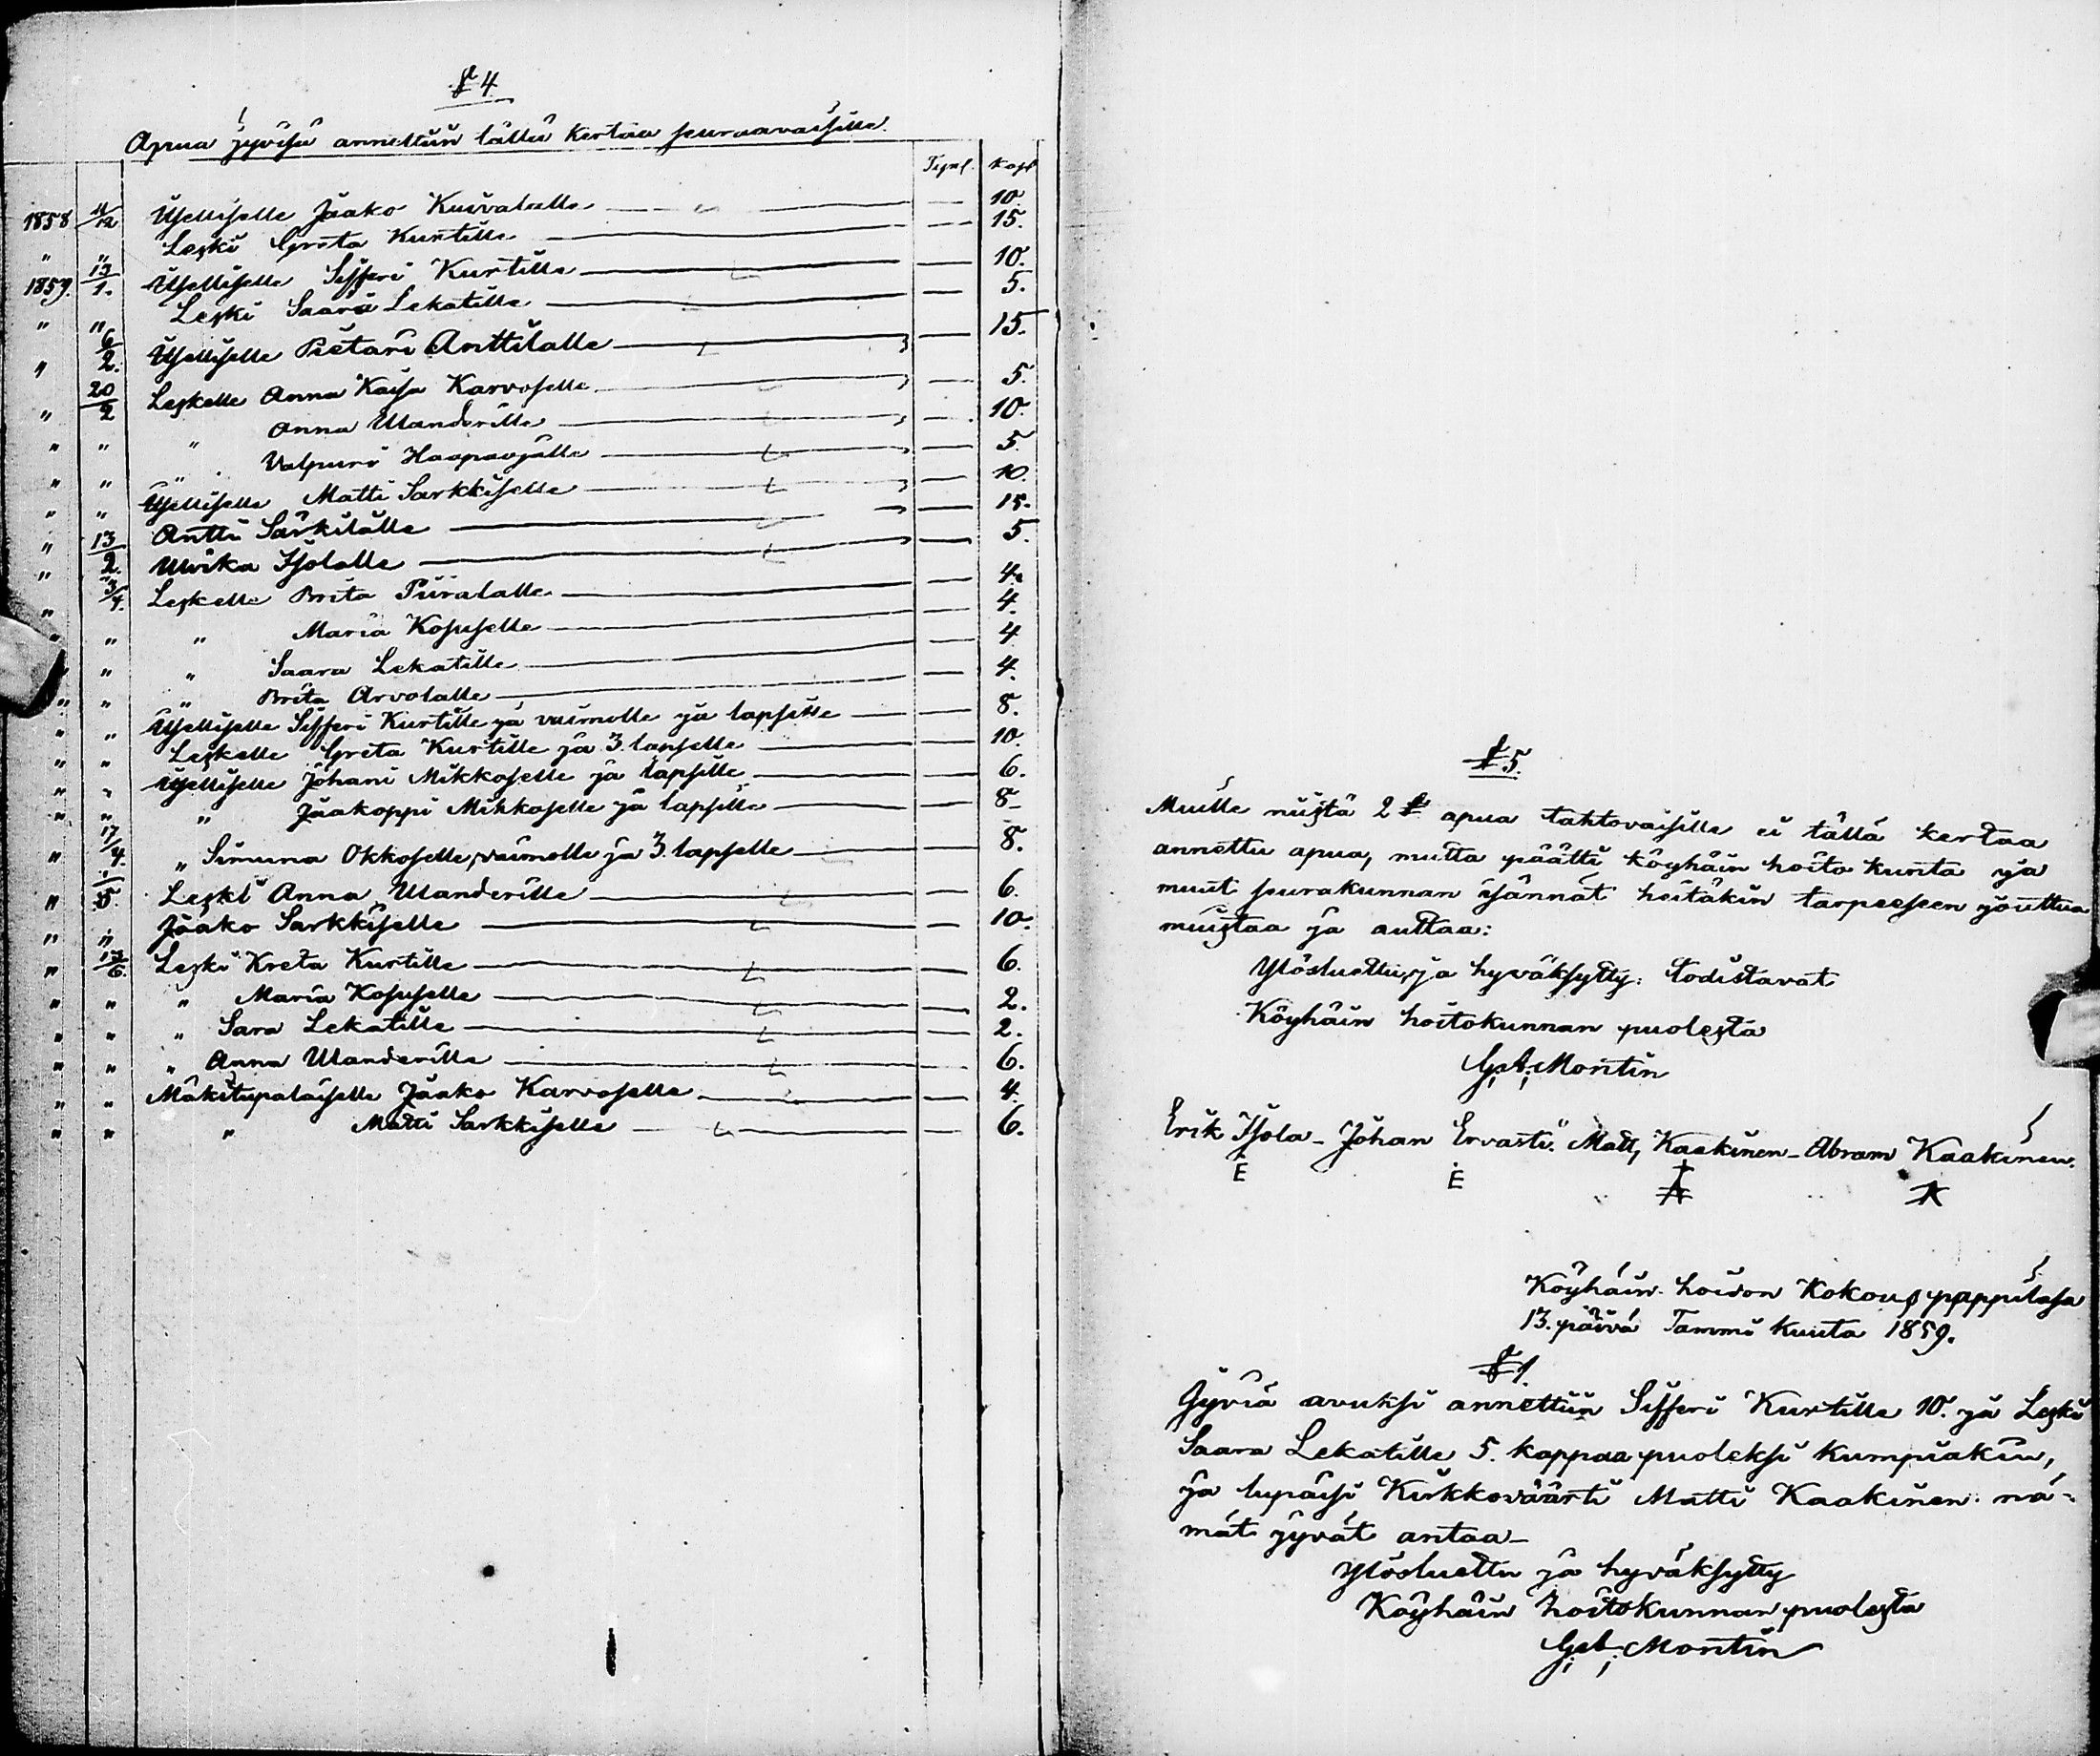 § 4
Apua jyvisä annettiin tällä kertaa seuraavaisille.
Kapp
1858 11/12 Itselliselle Jaako Kuivalalle — — 10.
" " Leski Greta Kurtille — — 15.
1859. 13/1. Itselliselle Sifferi Kurtille — — 10.
" " Leski Saara Lekatille — — 5.
" 6/2. Itselliselle Pietari Anttilalle — — 15.
" 20/2 Leskelle Anna Kaisa Karvoselle — — 5.
" " " Anna Ulanderille — — 10.
" " " Valpuri Haapaojalle — — 5.
" " Itselliselle Matti Sarkkiselle — — 10.
" 13/2. Antti Särkilälle — — 15.
" Ulrika Isolalle — — 5.
" 3/4. Leskelle Brita Piiralalle — — 4.
" " " Maria Kosuselle — — 4.
" " " Saara Lekatille — — 4
" " " Brita Arvolalle — — 4.
" " Itselliselle Sifferi Kurtille ja vaimolle ja lapsille — — 8.
" " Leskelle Greta Kurtille ja 3. lapselle — — 10.
" " Itselliselle Johani Mikkoselle ja lapsille — — 6.
" " " Jaakoppi Mikkoselle ja lapsille — — 8.
" 17/4. " Simuna Okkoselle, vaimolle ja 3. lapselle — — 8.
" 1/5. Leski Anna Ulanderille — — 6.
" " Jaako Sarkkiselle — — 10.
" Leski Kreta Kurtille — — 6.
" " " Maria Kosuselle — — 2.
" " " Sara Lekatille — — 2.
" " " Anna Ulanderille — — 6.
" " Mäkitupalaiselle Jaako Karvoselle — — 4.
" " " Matti Sarkkiselle — — 6.
§ 5.
Muille niistä 2 § apua tahtovaisille ei tällä kertaa
annettu apua, mutta päätti köyhäin hoito kunta ja
muut seurakunnan isännät heitäkin tarpeeseen jouttua
muistaa ja auttaa:
Ylösluettu ja hyväksytty: todistavat
Köyhäin hoitokunnan puolesta
G. A. Montin
Erik Isola - Johan Ervasti. Matt, Kaakinen - Abram Kaakinen.
E E A A
Köyhäin hoidon Kokous pappilasa
13. päivä Tammi kuuta 1859.
§ 1.
Jyviä avuksi annettiin Sifferi Kurtille 10. ja Leski
Saara Lekatille 5. kappaa puoleksi kumpiakin,
ja lupaisi Kirkkoväärti Matti Kaakinen nä-
mät jyvät antaa -
Ylösluettu ja hyväksytty
Köyhäin hoitokunnan puolesta
G. A. Montin